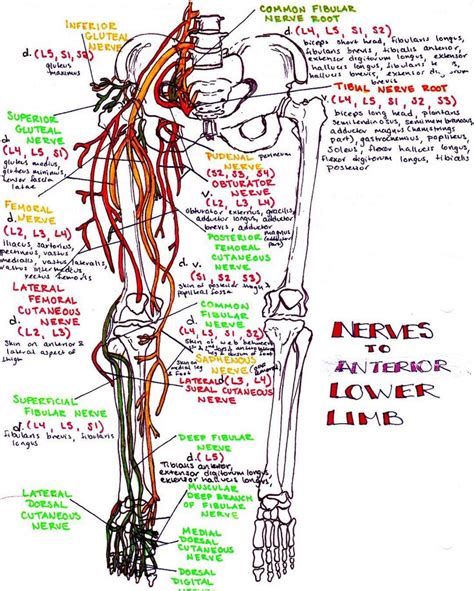 COMMON FIBULAR
NERVE ROOT
d. (L4, L5, S1, S2)
biceps short head, fibularis longus,
fibularis brevis, tibialis anterior,
extensor digitorum longus, extensor
hallucis longus, fibularis
hallucis brevis, extensor
brevis
TIBIAL NERVE ROOT
(L4, L5, S1, S2, S3)
biceps long head, plantaris
semitendinosus, semimem branosus,
adductor magnus (hamstrings
part), gastrocnemius, popliteus,
soleus, flexor hallucis longus
flexor digitorum longus, tibialis
posterior
INFERIOR
GLUTEAL
NERVE
d. (L5, S1, S2)
gluteus
maximus
SUPERIOR
GLUTEAL
NERVE
d.
(L4, L5, S1)
gluteus medius,
gluteus minimus,
tensor fascia
latae
FEMORAL
NERVE
d.
(L2, L3, L4)
iliacus, sartorius,
pectineus, vastus
medialis, vastus lateralis,
vastus intermedius
rectus femoris
LATERAL
FEMORAL
CUTANEOUS
NERVE
d.
(L2, L3)
skin on anterior &
lateral aspect of
thigh
PUDENAL perineum
NERVE
(S2, S3, S4)
OBTURATOR
NERVE
v.
(L2, L3, L4)
obturator externus, gracilis,
adductor longus, adductor
brevis, adductor
magnus
POSTERIOR
FEMORAL
CUTANEOUS
NERVE
d.
(S1, S2, S3)
skin of posterior thigh &
popliteal fossa
COMMON
FIBULAR
NERVE
d.
(L4, L5, S1, S2)
skin of web between
SAPHENOUS
NERVE
skin on
medial
leg &
foot
(L3, L4)
LATERAL
SURAL CUTANEOUS
NERVE
NERVES
TO
ANTERIOR
LOWER
LIMB
SUPERFICIAL
FIBULAR NERVE
d. (L4, L5, S1)
fibularis brevis, fibularis
longus
DEEP FIBULAR
NERVE
d. (L5)
Tibialis anterior,
extensor digitorum longus,
extensor hallucis longus,
MUSCULAR
DEEP BRANCH
OF FIBULAR
NERVE
LATERAL
DORSAL
CUTANEOUS
NERVE
MEDIAL
DORSAL
CUTANEOUS
NERVE
DORSAL
DIGITAL
NERVE